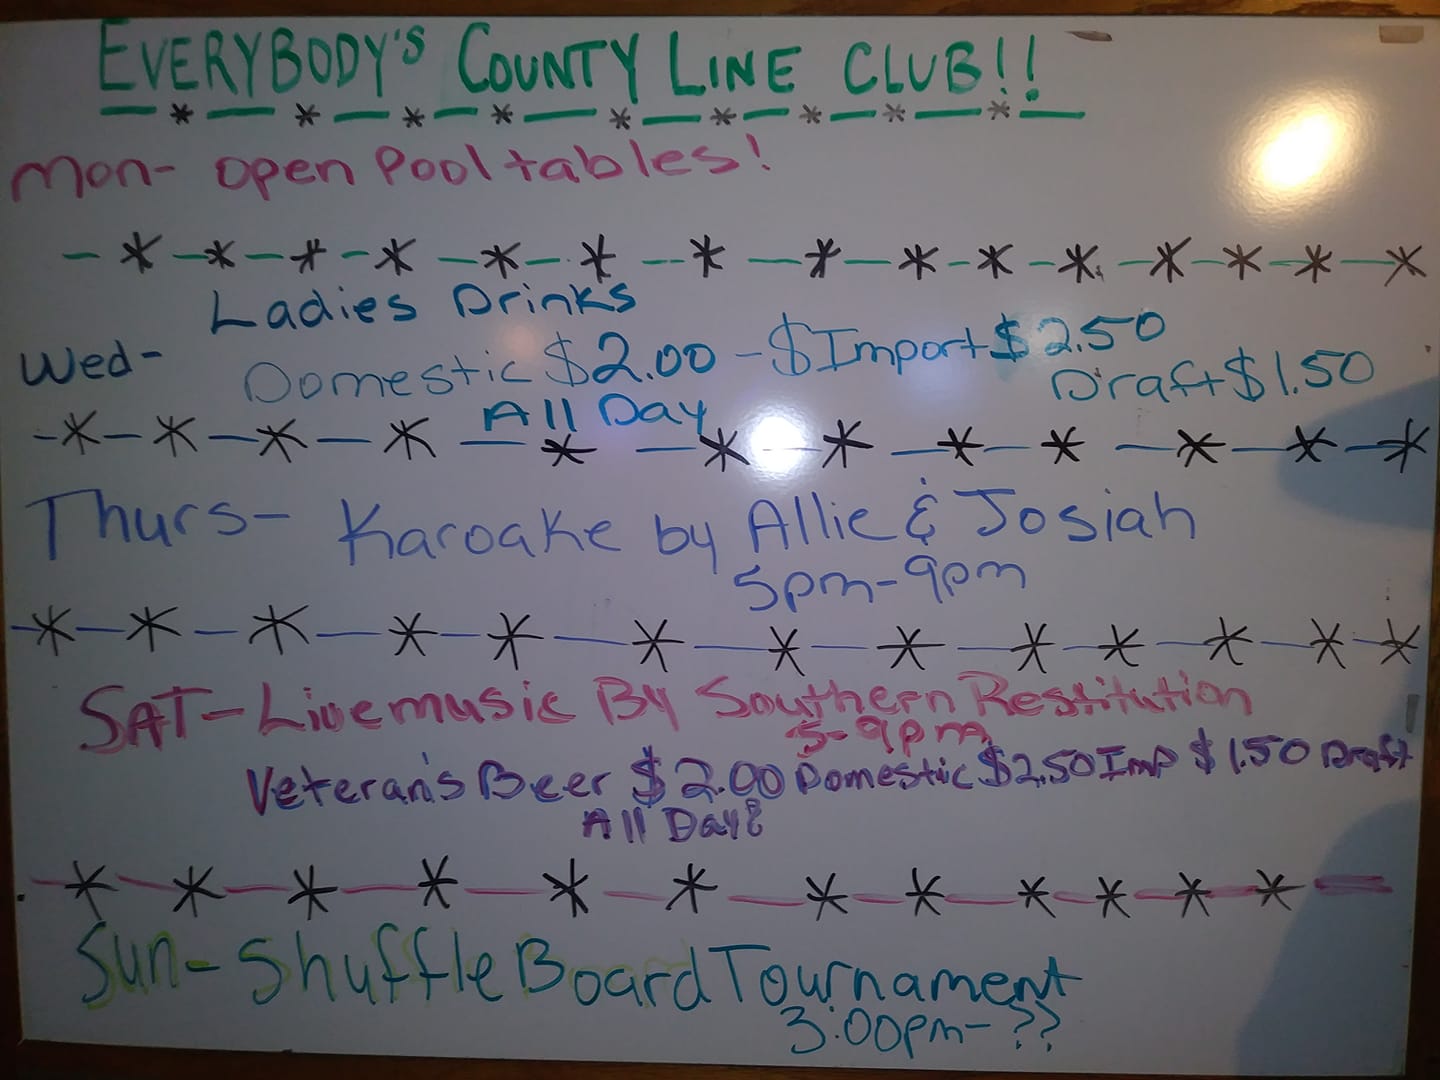 EVERYBODY'S COUNTY LINE CLUB!!
Mon- Open Pool tables!
Ladies Drinks
Wed- Domestic $2.00 - $Import $2.50
Draft $1.50
All Day
Thurs- Karoake by Allie & Josiah
5pm-9pm
SAT- Live music By Southern Restitution
5-9pm
Veteran's Beer $2.00 Domestic $2.50 Imp $1.50 Draft
All Day!
Sun- Shuffle Board Tournament
3:00pm- ??